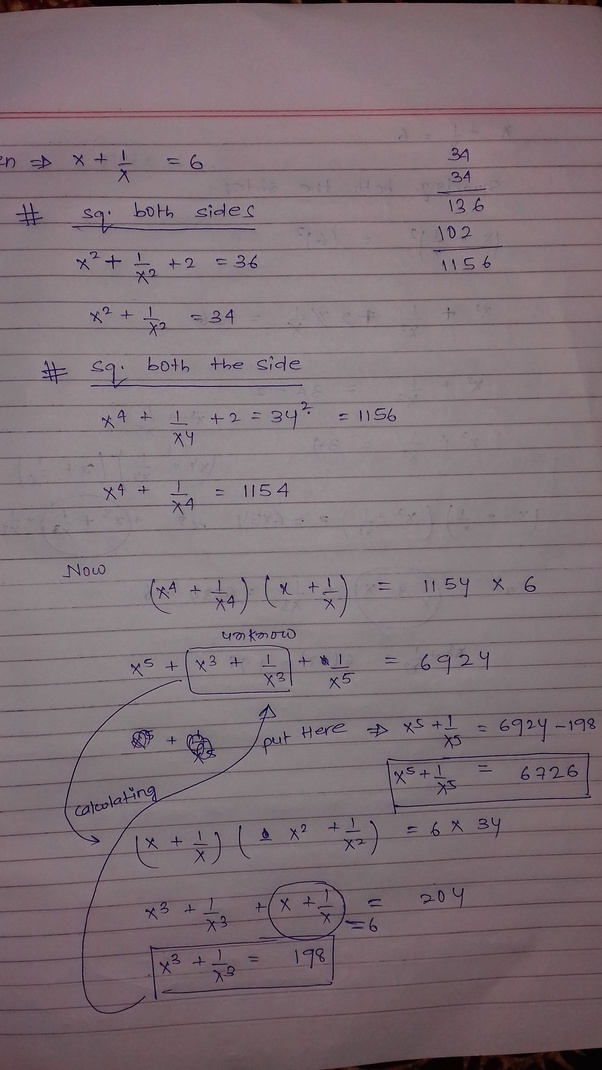 en ⇒ x + 1/x = 6
34
34
136
102
1156
# sq. both sides
x² + 1/x² + 2 = 36
x² + 1/x² = 34
# sq. both the side
x⁴ + 1/x⁴ + 2 = 34² = 1156
x⁴ + 1/x⁴ = 1154
Now
(x⁴ + 1/x⁴) (x + 1/x) = 1154 × 6
unknow
x⁵ + x³ + 1/x³ + 1/x⁵ = 6924
put Here ⇒ x⁵ + 1/x⁵ = 6924 - 198
x⁵ + 1/x⁵ = 6726
calculating
(x + 1/x) (x² + 1/x²) = 6 × 34
x³ + 1/x³ + x + 1/x = 204
= 6
x³ + 1/x³ = 198